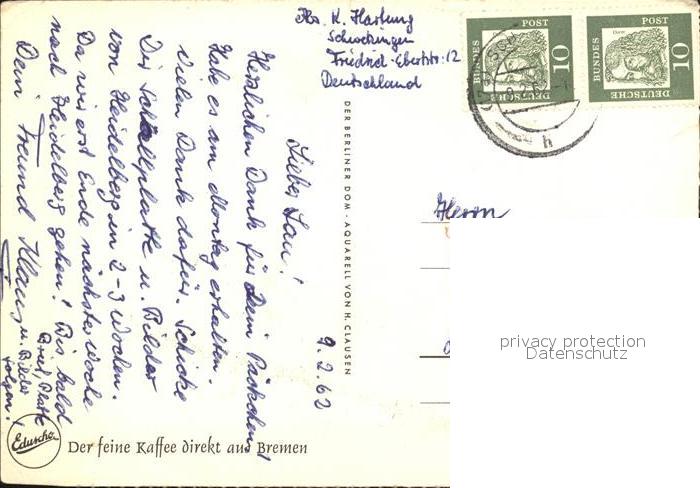 Abs. K. Hartung
Schwetzingen
Friedrich-Ebertstr. 12
Deutschland
DEUTSCHE BUNDESPOST 10
Dürer
DEUTSCHE BUNDESPOST 10
9.2.62
Lieber Jan!
Herzlichen Dank für Dein Päckchen!
Habe es am Montag erhalten.
Vielen Dank dafür. Schicke
Dir Schallplatte u. Bilder
von Heidelberg in 2-3 Wochen.
Da wir erst Ende nächster Woche
nach Heidelberg gehen! Bis bald
Dein Freund Klaus
Brief, Platte
u. Bilder
folgen!
DER BERLINER DOM · AQUARELL VON H. CLAUSEN
Herrn
privacy protection
Datenschutz
Eduscho
Der feine Kaffee direkt aus Bremen